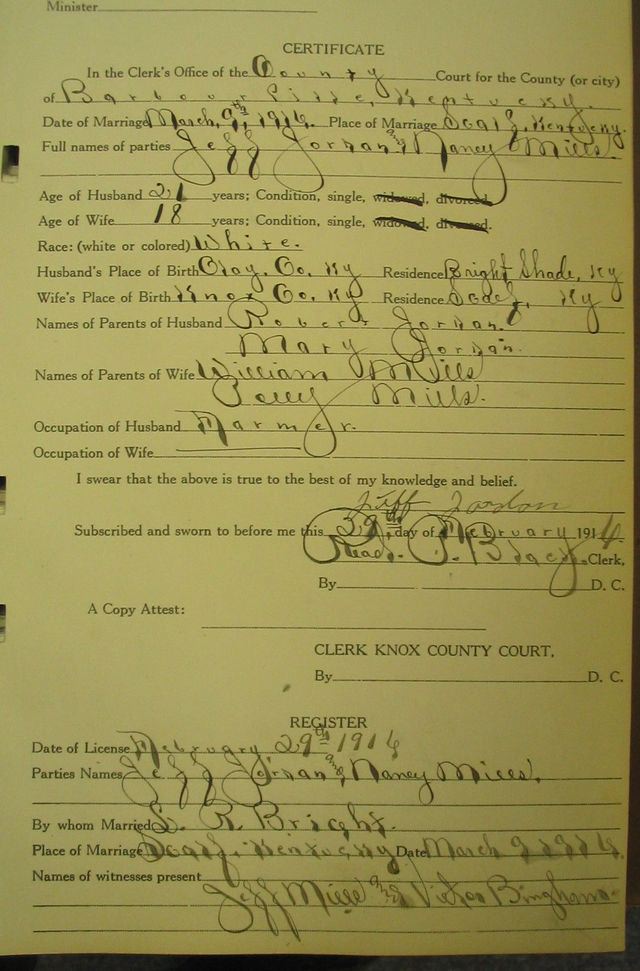 Minister
CERTIFICATE
In the Clerk's Office of the County Court for the County (or city)
of Barbourville, Kentucky.
Date of Marriage March, 9th, 1916. Place of Marriage Kentucky.
Full names of parties Jeff Jordan and Nancy Mills.
Age of Husband 21 years; Condition, single, widowed, divorced.
Age of Wife 18 years; Condition, single, widowed, divorced.
Race: (white or colored) White.
Husband's Place of Birth Clay, Co, Ky Residence Bright Shade, Ky
Wife's Place of Birth Knox Co, Ky Residence Ky
Names of Parents of Husband Robert Jordan.
Mary Jordan.
Names of Parents of Wife William Mills
Polly Mills.
Occupation of Husband Farmer.
Occupation of Wife
I swear that the above is true to the best of my knowledge and belief.
Jeff Jordon
Subscribed and sworn to before me this 29th day of February 1916
Read P. Black. Clerk,
By D. C.
A Copy Attest:
CLERK KNOX COUNTY COURT,
By D. C.
REGISTER
Date of License February 29th 1916
Parties Names Jeff Jordan and Nancy Mills.
By whom Married R. Bright.
Place of Marriage Kentucky Date March 9 1916.
Names of witnesses present
Jeff Mills and Bingham.